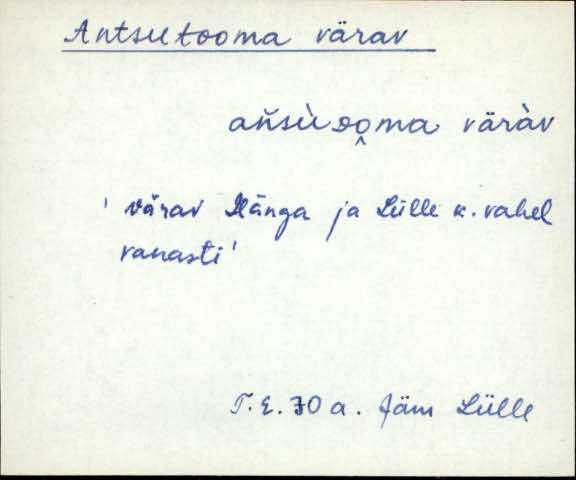 Antsutooma värav
ańsùooma väràv
' värav Hänga ja Lülle k. vahel
vanasti '
T. E. 70 a. Jäm Lülle